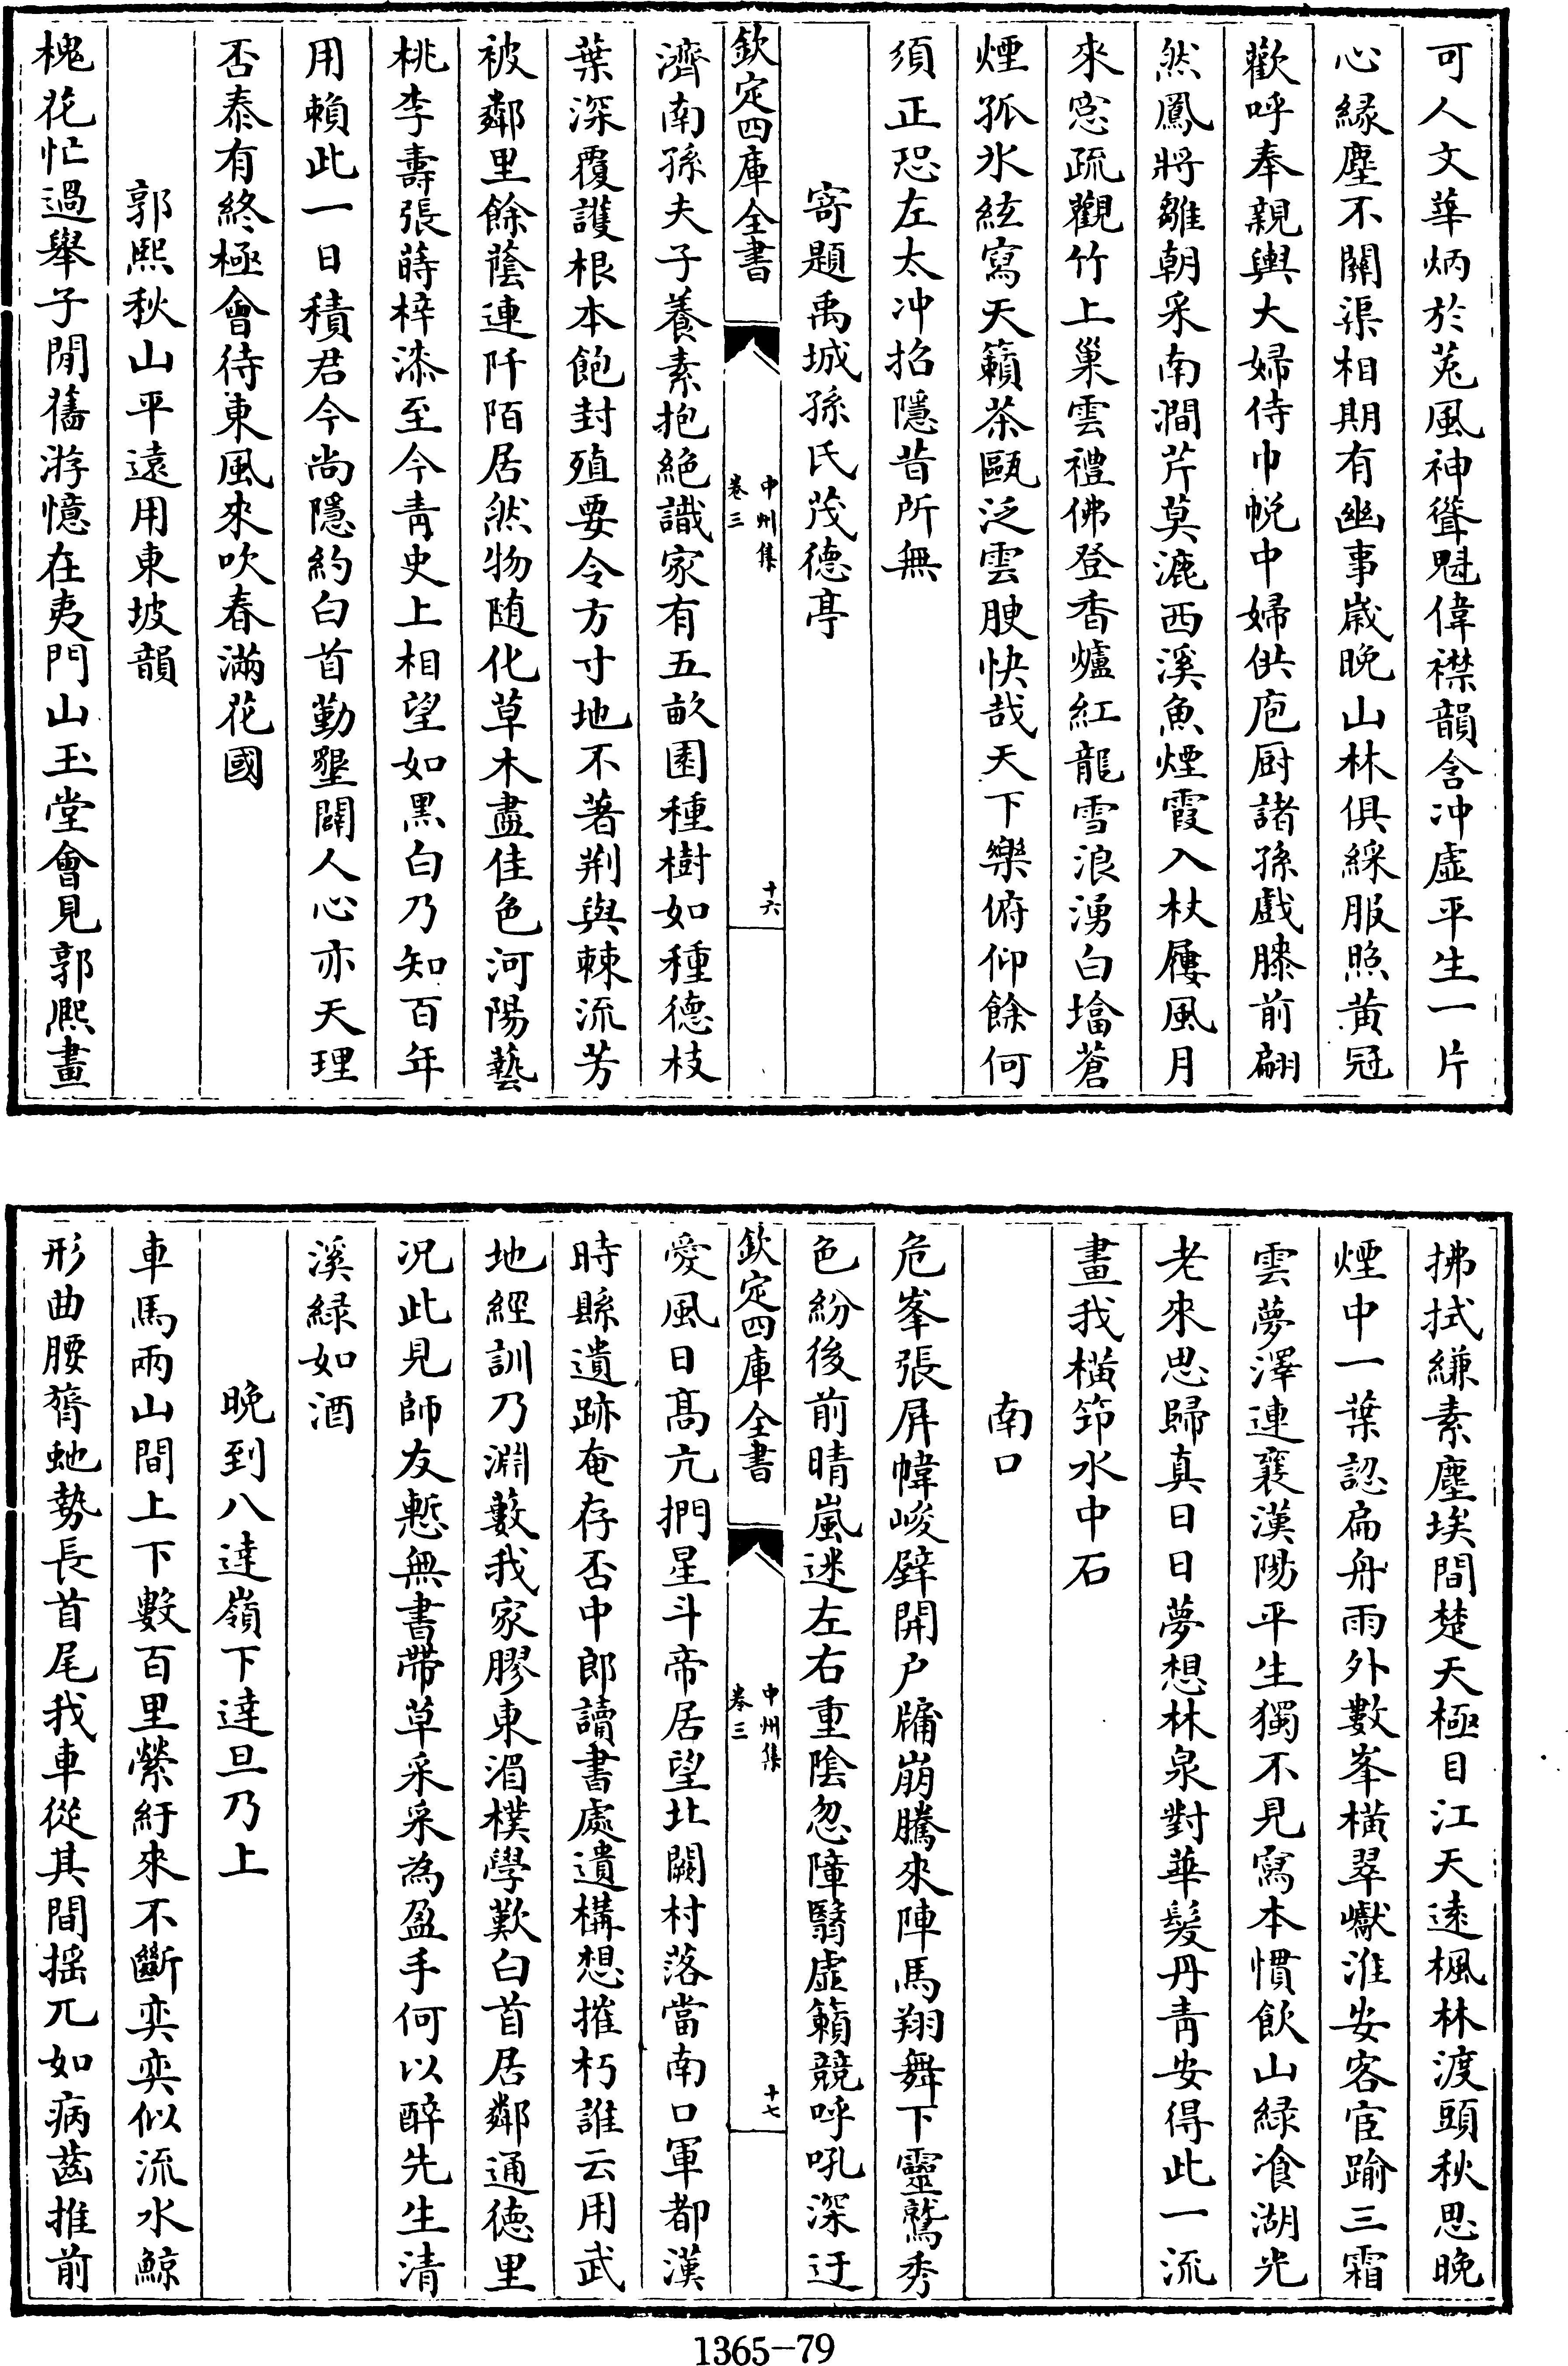 可人文華炳於菟風神聳魁偉襟韻含冲虛平生一片
心緣塵不關渠相期有幽事歲晚山林俱綵服照黃冠
歡呼奉親輿大婦侍巾帨中婦供庖厨諸孫戲膝前翩
然鳳將雛朝采南澗芹莫漉西溪魚煙霞入杖屨風月
來窓疏觀竹上巢雲禮佛登香爐紅龍雪浪湧白墖蒼
煙孤氷絃寫天籟茶甌泛雲腴快哉天下樂俯仰餘何
須正恐左太冲招隱昔所無
寄題禹城孫氏茂德亭
欽定四庫全書
中州集
卷三
十六
濟南孫夫子養素抱絶識家有五畝園種樹如種德枝
葉深覆護根本飽封殖要令方寸地不著荆與棘流芳
被鄰里餘蔭連阡陌居然物随化草木盡佳色河陽藝
桃李壽張蒔梓漆至今青史上相望如黑白乃知百年
用賴此一日積君今尚隱約白首勤墾闢人心亦天理
否泰有終極會待東風來吹春滿花國
郭熙秋山平遠用東坡韻
槐花忙過舉子閒舊游憶在夷門山玉堂會見郭熙畫
拂拭縑素塵埃間楚天極目江天遠楓林渡頭秋思晚
煙中一葉認扁舟雨外數峯横翠巘淮安客宦踰三霜
雲夢澤連襄漢陽平生獨不見寫本慣飲山緑飡湖光
老來思歸真日日夢想林泉對華髮丹青安得此一流
畫我横笻水中石
南口
危峯張屏幃峻壁開户牖崩騰來陣馬翔舞下靈鷲秀
色紛後前晴嵐迷左右重陰忽障翳虛籟競呼吼深迂
欽定四庫全書
中州集
卷三
十七
愛風日髙亢捫星斗帝居望北闕村落當南口軍都漢
時縣遺跡奄存否中郎讀書處遺構想摧朽誰云用武
地經訓乃淵藪我家膠東湄樸學歎白首居鄰通德里
況此見師友慙無書帶草采采為盈手何以醉先生清
溪緑如酒
晚到八達嶺下達旦乃上
車馬兩山間上下數百里縈紆來不斷奕奕似流水鯨
形曲腰膂虵勢長首尾我車從其間摇兀如病齒推前
1365-79